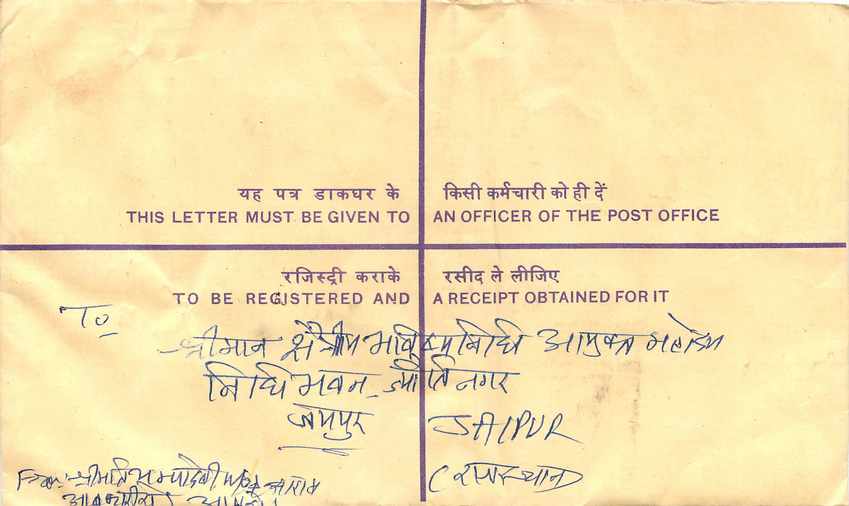 यह पत्र डाकघर के किसी कर्मचारी को ही दें
THIS LETTER MUST BE GIVEN TO AN OFFICER OF THE POST OFFICE
रजिस्ट्री कराके रसीद ले लीजिए
TO BE REGISTERED AND A RECEIPT OBTAINED FOR IT
To
श्रीमान क्षेत्रीय भविष्य निधि आयुक्त महोदय
निधि भवन ज्योति नगर
जयपुर JAIPUR
(राजस्थान)
From:- श्रीमति